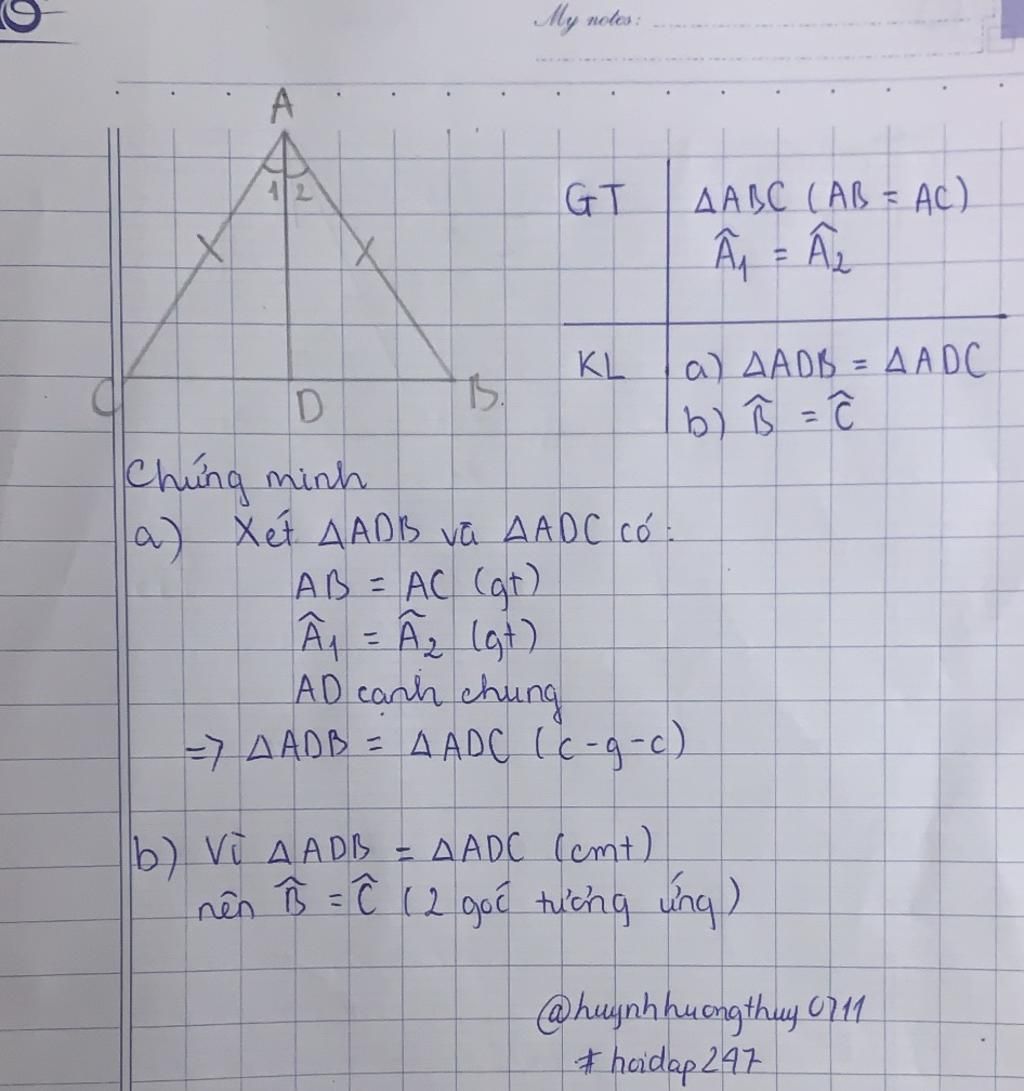 My notes:
A
1 2
C D B
GT ΔABC (AB = AC)
Â₁ = Â₂
KL a) ΔADB = ΔADC
b) B̂ = Ĉ
Chứng minh
a) Xét ΔADB và ΔADC có:
AB = AC (gt)
Â₁ = Â₂ (gt)
AD cạnh chung
=> ΔADB = ΔADC (c-g-c)
b) Vì ΔADB = ΔADC (cmt)
nên B̂ = Ĉ (2 góc tương ứng)
@huynhhuongthuy0711
#hoidap247